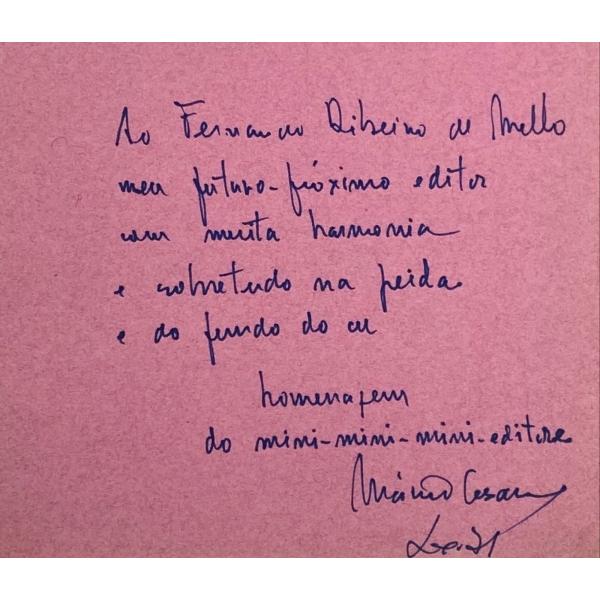 Ao Fernando Ribeiro de Mello
meu futuro-próximo editor
com muita harmonia
e sobretudo na peida
e do fundo do cu
homenagem
do mini-mini-mini-editore
Mário Cesariny